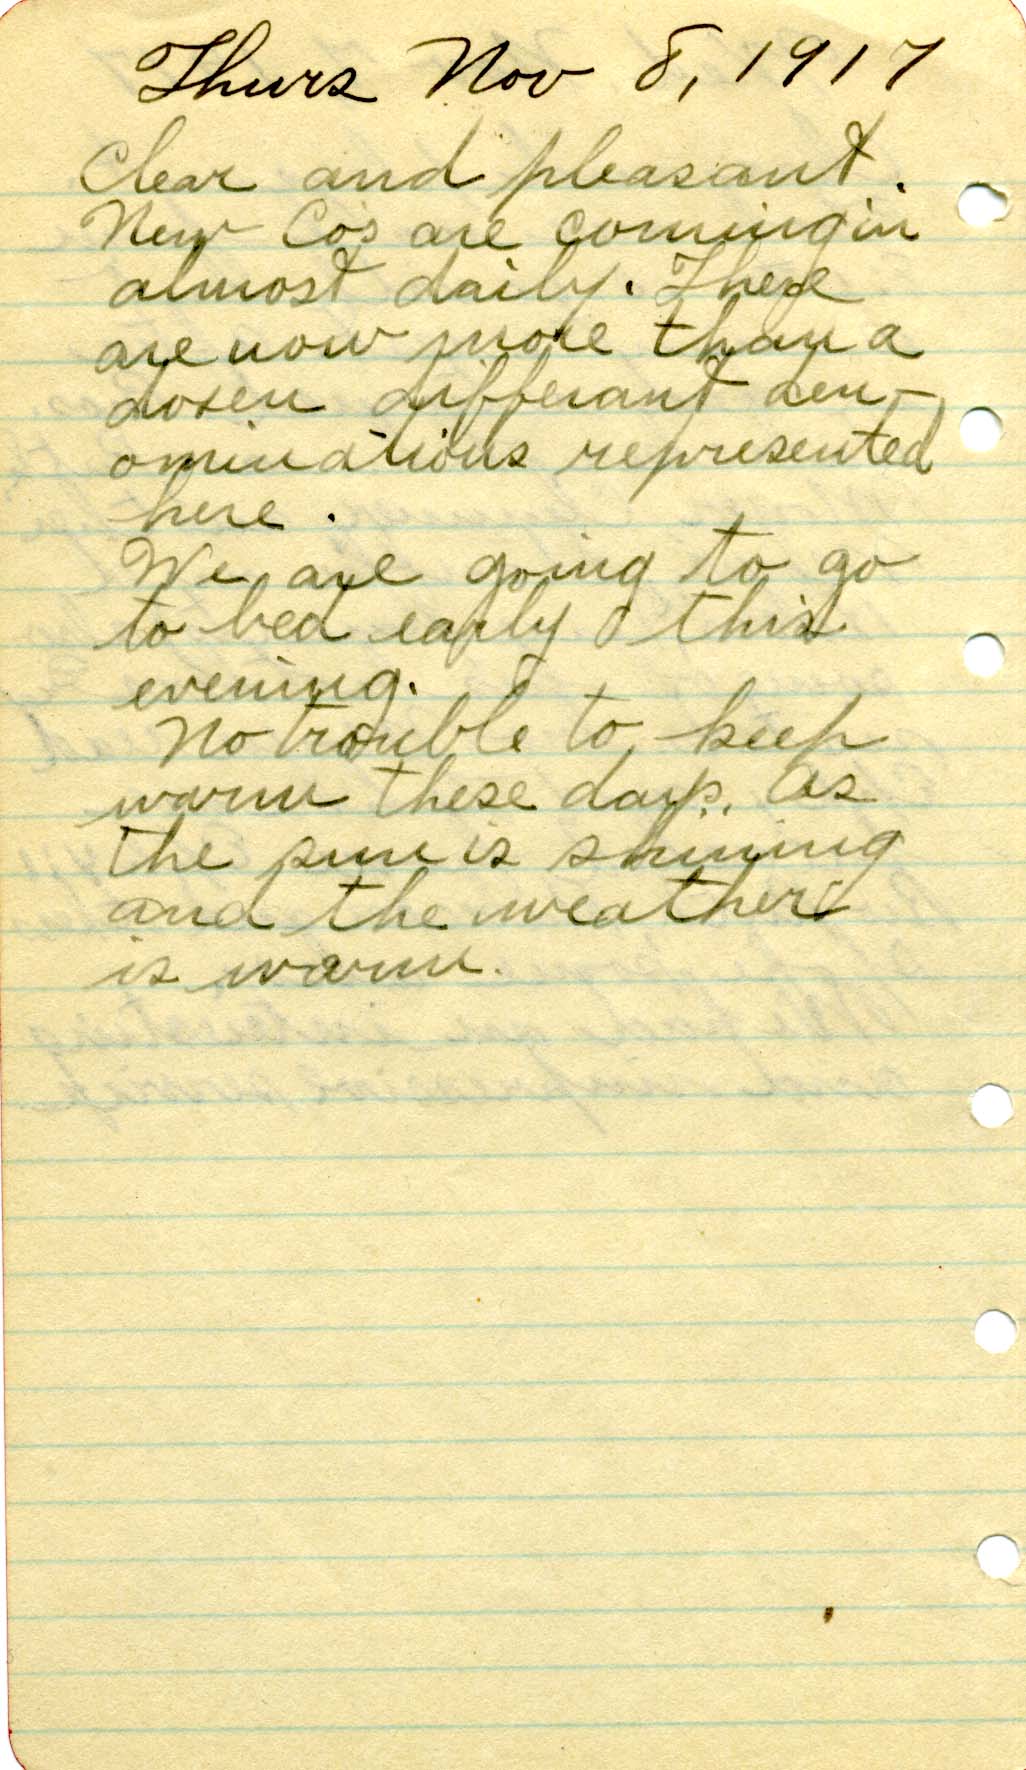 Thurs Nov 8, 1917
Clear and pleasant.
New Co's are coming in
almost daily. There
are now more than a
dozen differant den-
ominations represented
here.
We are going to go
to bed early this
evening.
No trouble to keep
warm these days. as
the sun is shining
and the weather
is warm.